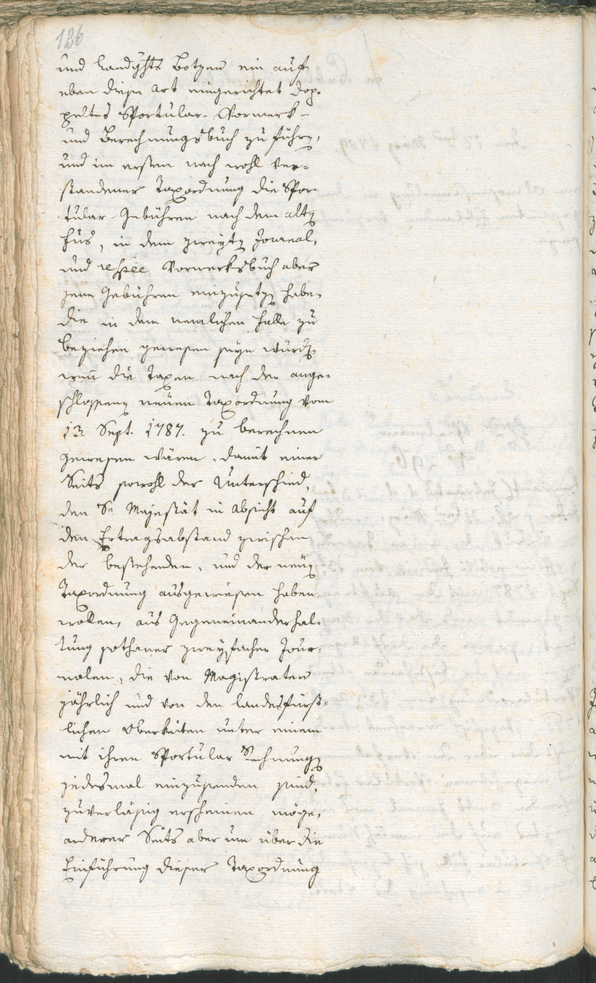 126
und Landgfts Botzen ein auf
eben diese Art eingerichtet dop-
peltes Sportular- Vormerk-
und Berechnungsbuch zu führen,
und im ersten nach wohl ver-
standener Taxordnung die Spor-
tular Gebühren nach dem alten
Fus, in dem zweyten Journal,
und Vormerksbuch aber
jene Gebühren einzusetzen haben,
die in dem nemlichen Falle zu
beziehen gewesen seyn würden,
wenn die Taxen nach der ange-
schlossenen neuen Taxordnung vom
13. Sept. 1787. zu berechnen
gewesen wären, damit einer
Seits sowohl der Unterschied,
den Se Majestät in Absicht auf
den Ertragsabstand zwischen
der bestehenden, und der neuen
Taxordnung ausgewiesen haben
wollen, aus Gegeneinanderhal-
tung sothaner zweyfacher Jour-
nalen, die von Magistraten
jährlich und von den landesfürst-
lichen Oberkeiten unter einem
mit ihren Sportular Rechnungen
jedesmal einzusenden sind,
zuverläßig erscheinen möge,
anderer Seits aber um über die
Einführung dieser Taxordnung